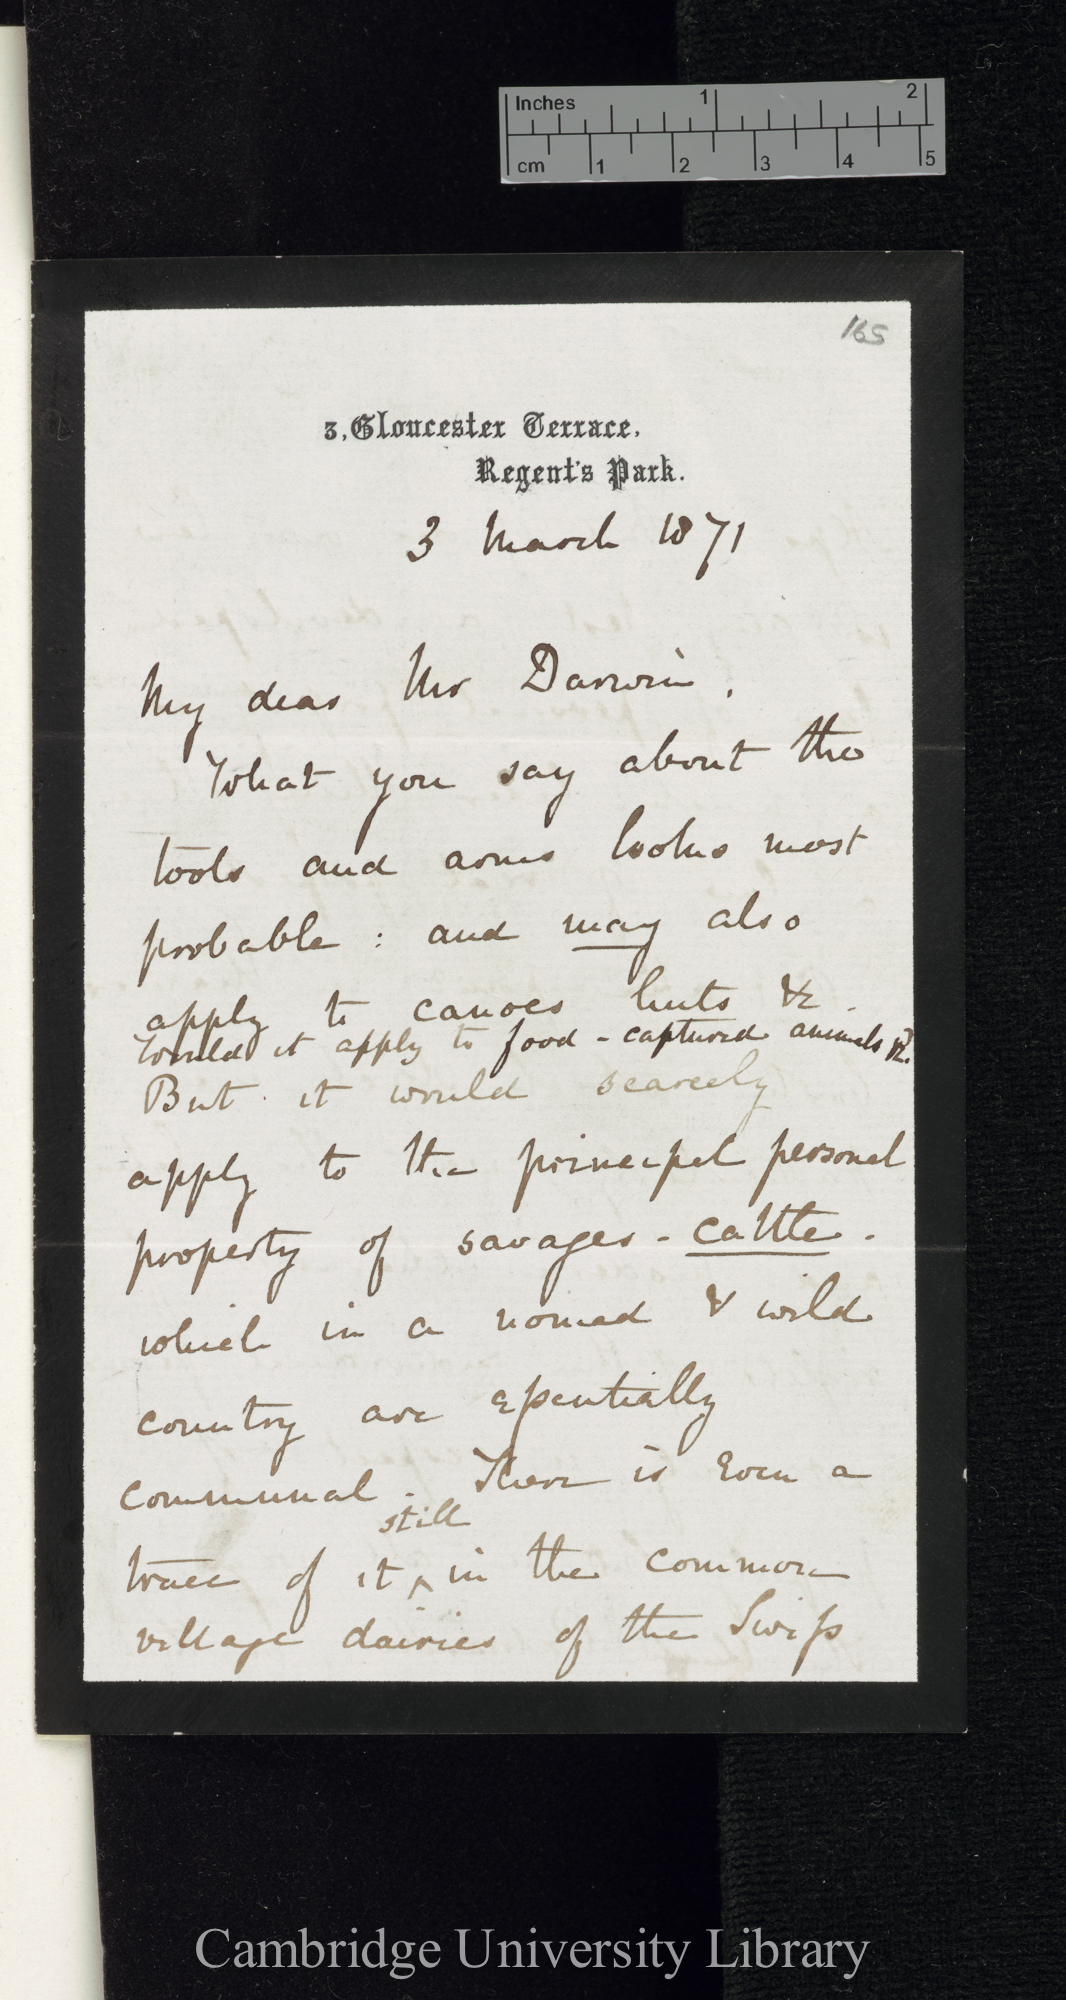 Inches 1 2
cm 1 2 3 4 5
165
3, Gloucester Terrace,
Regent's Park.
3 March 1871
My dear Mr Darwin,
What you say about the
tools and arms looks most
probable : and may also
apply to canoes huts &c.
Would it apply to food - captured animals &c.
But it would scarcely
apply to the principal personal
property of savages - cattle -
which in a nomad & wild
country are essentially
communal. There is even a
still
trace of it ^ in the common
village dairies of the Swiss
Cambridge University Library